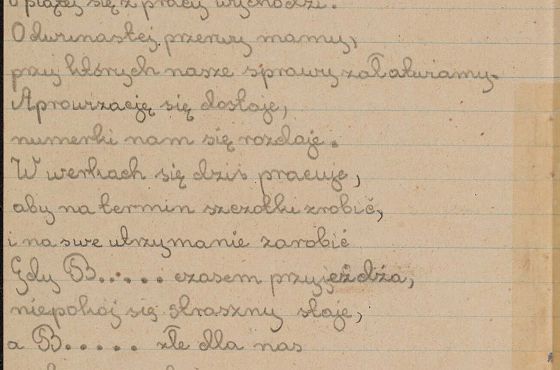 o piątej się z pracy wychodzi.
O dwunastej przerwy mamy,
przy których nasze sprawy załatwiamy.
Aprowizację się dostaje,
numerki nam się rozdaje.
W werkach się dziś pracuje,
aby na termin szczotki zrobić,
i na swe utrzymanie zarobić
Gdy B..... czasem przyjeżdża,
niepokój się straszny staje,
a B..... złe dla nas